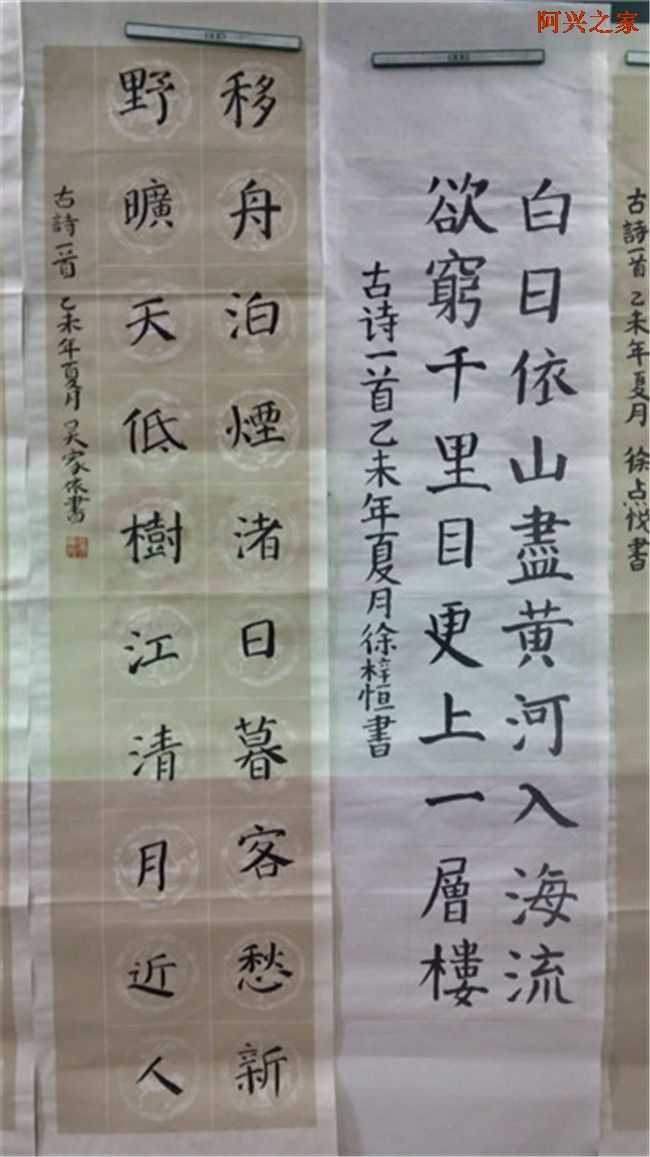 阿兴之家
古詩一首 乙未年夏月 徐点悦書
白日依山盡黄河入海流
欲窮千里目更上一層樓
古诗一首乙未年夏月徐梓恒書
移舟泊煙渚日暮客愁新
野曠天低樹江清月近人
古詩一首 乙未年夏月 吴家依書